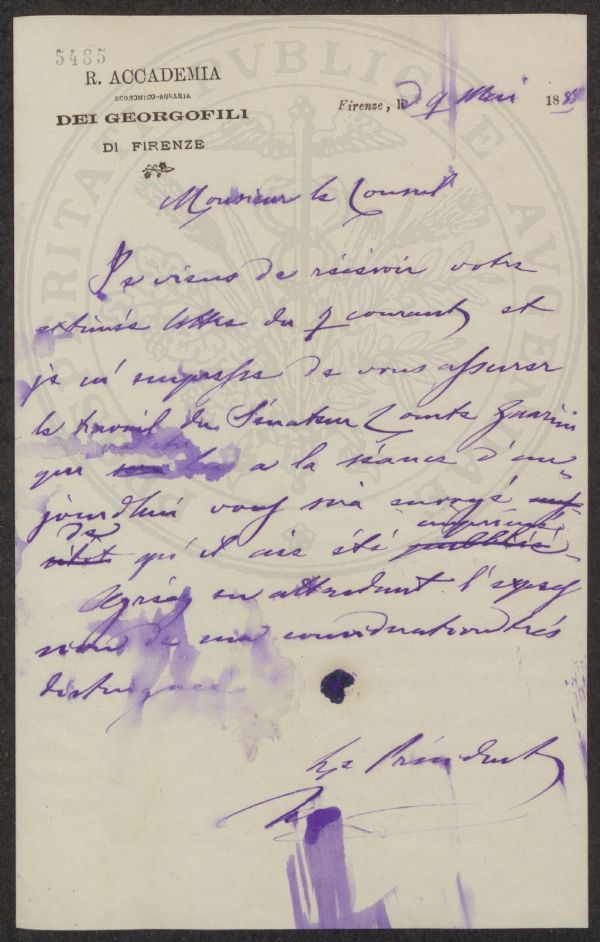 5485
R. ACCADEMIA
ECONOMICO-AGRARIA
DEI GEORGOFILI
DI FIRENZE
Firenze, li 9 Mai 188
Monsieur le Consul
Je viens de recevoir votre
estimée lettre du 7 courant et
je m'empresse de vous assurer
le travail du Sénateur Comte
que a la séance d'au-
jourdhui vous sera envoyé
imprimé
des
qu'il aie été publié
Agréez en attendant l'expres
sions de ma consideration trés
distinguée
Le Président